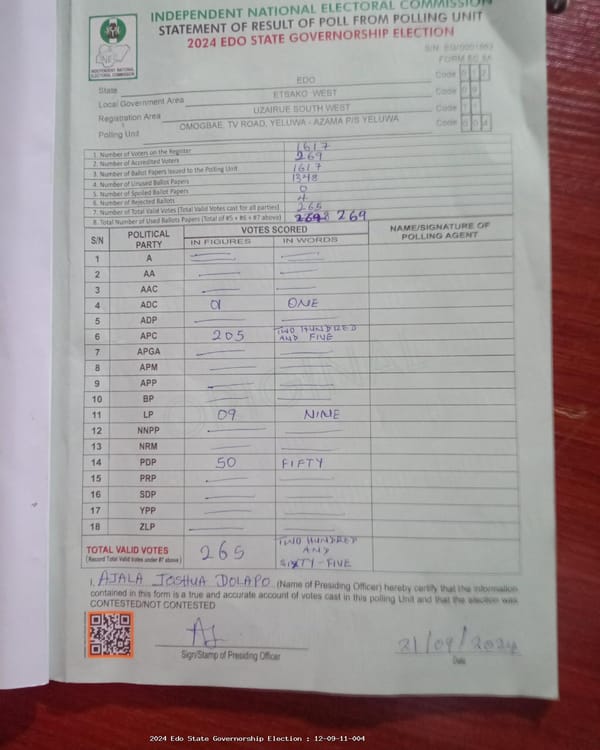 INDEPENDENT NATIONAL ELECTORAL COMMISSION
STATEMENT OF RESULT OF POLL FROM POLLING UNIT
2024 EDO STATE GOVERNORSHIP ELECTION
INDEPENDENT NATIONAL
ELECTORAL COMMISSION
FORM EC 8A
State EDO Code
Local Government Area ETSAKO WEST Code
Registration Area UZAIRUE SOUTH WEST Code
Polling Unit OMOGBAE, TV ROAD, YELUWA - AZAMA P/S YELUWA Code 004
1. Number of Voters on the Register 1617
2. Number of Accredited Voters 269
3. Number of Ballot Papers Issued to the Polling Unit 1617
4. Number of Unused Ballot Papers 1348
5. Number of Spoiled Ballot Papers 0
6. Number of Rejected Ballots 4
7. Number of Total Valid Votes (Total Valid Votes cast for all parties) 265
8. Total Number of Used Ballots Papers (Total of #5 + #6 + #7 above) 269
S/N POLITICAL PARTY VOTES SCORED NAME/SIGNATURE OF POLLING AGENT
IN FIGURES IN WORDS
1 A
2 AA
3 AAC
4 ADC 01 ONE
5 ADP
6 APC 205 TWO HUNDRED AND FIVE
7 APGA
8 APM
9 APP
10 BP
11 LP 09 NINE
12 NNPP
13 NRM
14 PDP 50 FIFTY
15 PRP
16 SDP
17 YPP
18 ZLP
TOTAL VALID VOTES 265 TWO HUNDRED AND SIXTY-FIVE
(Record Total Valid Votes under #7 above)
I, AJALA JOSHUA DOLAPO (Name of Presiding Officer) hereby certify that the information
contained in this form is a true and accurate account of votes cast in this polling Unit and that the election was
CONTESTED/NOT CONTESTED
Sign/Stamp of Presiding Officer
21/09/2024
Date
2024 Edo State Governorship Election : 12-09-11-004